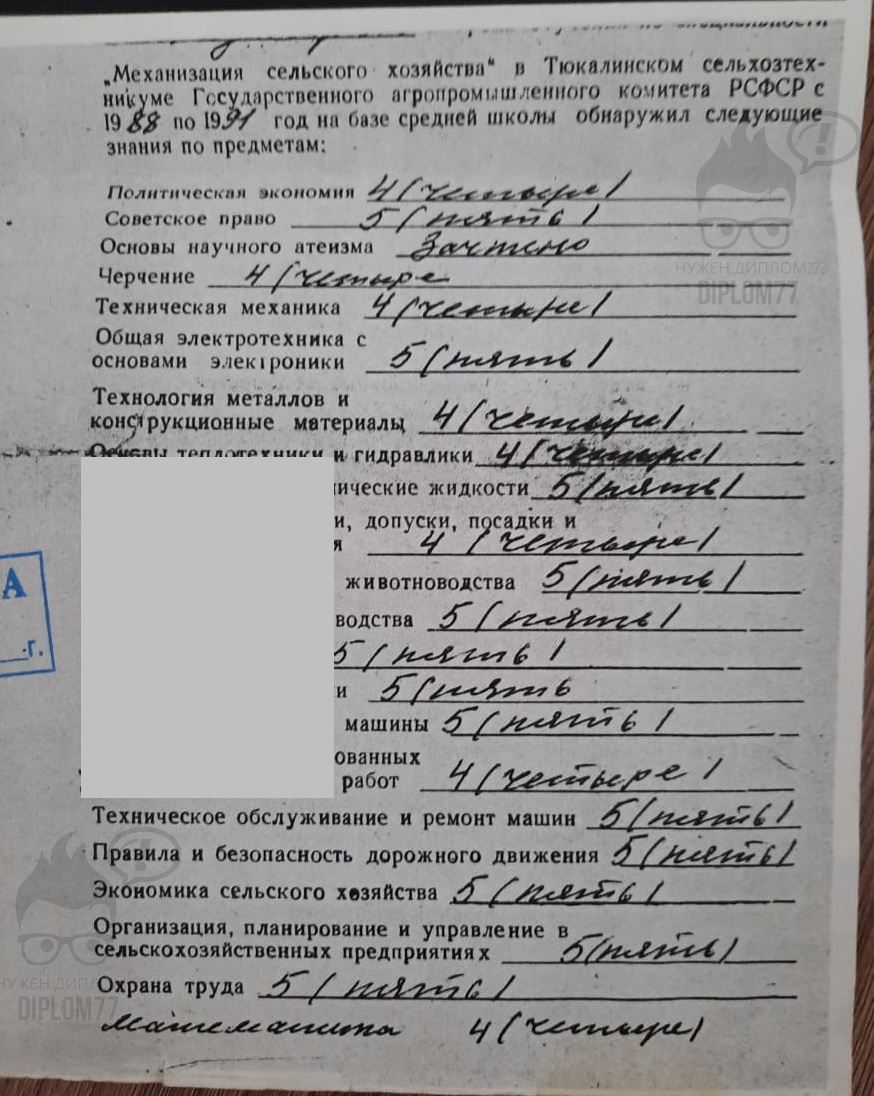 „Механизация сельского хозяйства“ в Тюкалинском сельхозтех-
никуме Государственного агропромышленного комитета РСФСР с
1988 по 1991 год на базе средней школы обнаружил следующие
знания по предметам:
Политическая экономия 4 (четыре)
Советское право 5 (пять)
Основы научного атеизма Зачтено
Черчение 4 (четыре
Техническая механика 4 (четыре)
Общая электротехника с
основами электроники 5 (пять)
Технология металлов и
конструкционные материалы 4 (четыре)
Основы теплотехники и гидравлики 4 (четыре)
ические жидкости 5 (пять)
и, допуски, посадки и
я 4 (четыре)
животноводства 5 (пять)
водства 5 (пять)
5 (пять)
и 5 (пять
машины 5 (пять)
ованных
работ 4 (четыре)
Техническое обслуживание и ремонт машин 5 (пять)
Правила и безопасность дорожного движения 5 (пять)
Экономика сельского хозяйства 5 (пять)
Организация, планирование и управление в
сельскохозяйственных предприятиях 5 (пять)
Охрана труда 5 (пять)
Математика 4 (четыре)
А
г.
НУЖЕН ДИПЛОМ???
DIPLOM77
НУЖЕН ДИПЛ
DIPLOM77